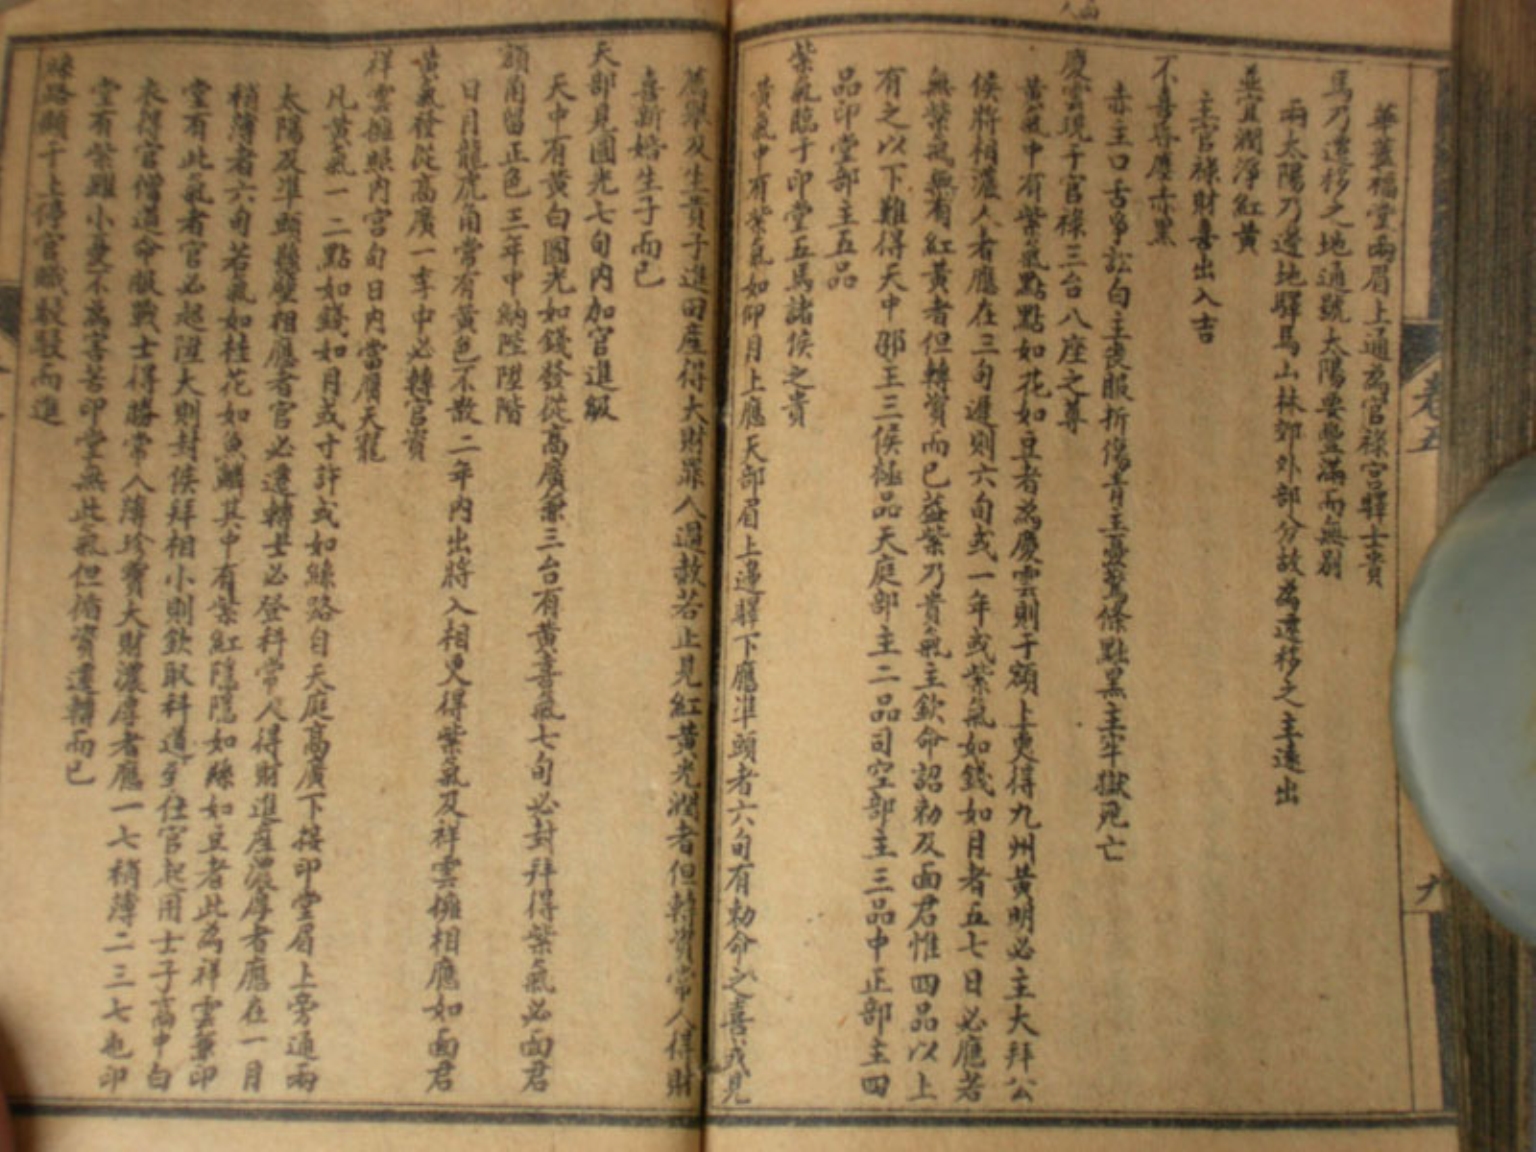 華蓋福堂兩眉上通為官祿宮驛士貴
馬乃遷移之地通號太陽要豐滿而無剋
兩太陽乃邊地驛馬山林郊外部分故為遷移之主遠出
並宜潤淨紅黃
主官祿財喜出入吉
不喜昏塵赤黑
赤主口舌爭訟白主喪服折傷青主憂驚條點黑主牢獄死亡
慶雲現于官祿三台八座之尊
黃氣中有紫氣點點如花如豆者為慶雲則于額上更得九州黃明必主大拜公
侯將相濃人者應在三旬遲則六旬或一年或紫氣如錢如月者五七日必應若
無紫氣無有紅黃者但轉資而已蓋紫乃貴氣主欽命詔勑及面君惟四品以上
有之以下難得天中部主三侯極品天庭部主二品司空部主三品中正部主四
品印堂部主五品
紫氣臨于印堂五馬諸侯之貴
黃氣中有紫氣如印月上應天部眉上邊驛下應準頭者六旬有勑命之喜或見
薦舉及生貴子進田產得大財罪人遇赦若止見紅黃光潤者但轉資常人得財
喜斯婚生子而已
天部見圓光七旬內加官進級
天中有黃白圓光如錢發從高廣兼三台有黃喜氣七旬必封拜得紫氣必面君
額角留正色三年中納陛陞階
日月龍虎角常有黃色不散二年內出將入相更得紫氣及祥雲擁相應如面君
黃氣發從高廣一季中必轉官資
祥雲擁縣內宮旬日內當膺天寵
凡黃氣一二點如錢如月或寸許或如絲路自天庭高廣下接印堂眉上旁通兩
太陽及準頭懸壁相應者官必遷轉士必登科常人得財進產濃厚者應在一月
稍薄者六旬若氣如桂花如魚鱗其中有紫紅隱隱如絲如豆者此為祥雲兼印
堂有此氣者官必起陞大則封侯拜相小則欽取科道至住官起用士子高中白
衣得官僧道命敕戰士得勝常人陣珍寶大財濃厚者應一七稍薄二三七也印
堂有紫雖小憂不為害若印堂無此氣但循資遷轉而已
絲路顯于上停官職移駁而進
卷五
六